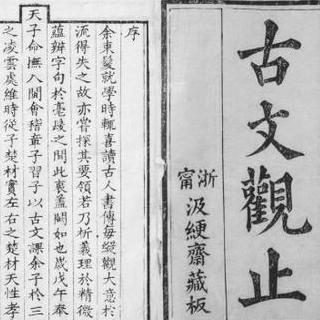 古文觀止
浙甯
汲綆齋藏板
序
余束髮就學時輒喜讀古人書傳每縱觀大意於
源得失之故亦嘗探其要領若乃析義理於精微
蘊辨字句於毫髮之間此衷蓋闕如也歲戊午奉
天子命撫八閩會稽章子習子以古文課余子於三
之凌雲處維時從子楚材實左右之楚材天性孝